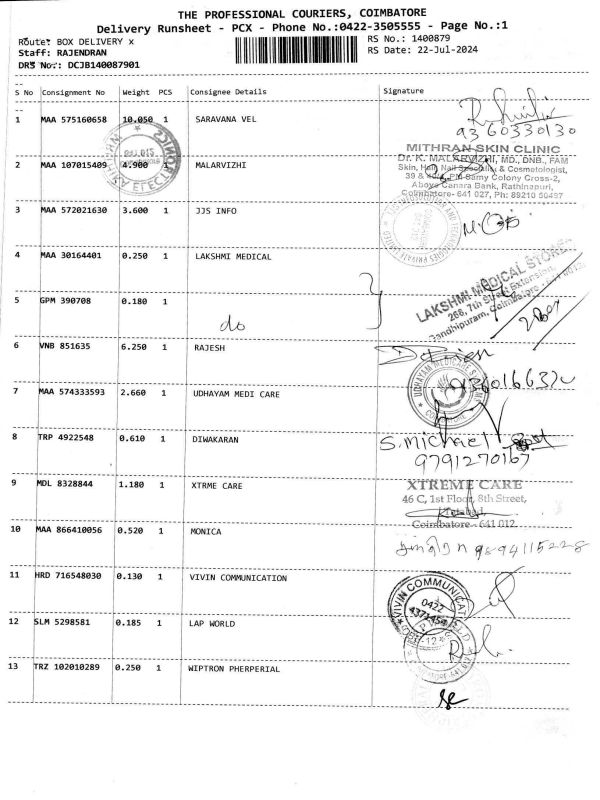 THE PROFESSIONAL COURIERS, COIMBATORE
Delivery Runsheet - PCX - Phone No.:0422-3505555 - Page No.:1
Route: BOX DELIVERY x
RS No.: 1400879
Staff: RAJENDRAN
RS Date: 22-Jul-2024
DRS No.: DCJB140087901
S No Consignment No Weight PCS Consignee Details Signature
1 MAA 575160658 10.050 1 SARAVANA VEL
9360330130
2 MAA 107015409 4.900 1 MALARVIZHI
MITHRAN SKIN CLINIC
Dr. K. MALARVIZHI, MD., DNB., FAM
Skin, Hair Nail Specialist & Cosmetologist,
Samy Colony Cross-2,
Above Canara Bank, Rathinapuri,
Coimbatore- 641 027, Ph: 89210 50497
3 MAA 572021630 3.600 1 JJS INFO
4 MAA 30164401 0.250 1 LAKSHMI MEDICAL
LAKSHMI MEDICAL STORES
266, 7th Street Extension,
Gandhipuram, Coimbatore
5 GPM 390708 0.180 1
do
6 VNB 851635 6.250 1 RAJESH
7 MAA 574333593 2.660 1 UDHAYAM MEDI CARE
8 TRP 4922548 0.610 1 DIWAKARAN
S. Michael
9791270167
9 MDL 8328844 1.180 1 XTRME CARE
XTREME CARE
46 C, 1st Floor, 8th Street,
Coimbatore - 641 012.
10 MAA 866410056 0.520 1 MONICA
9894115228
11 HRD 716548030 0.130 1 VIVIN COMMUNICATION
VIVIN COMMUNICATI
0422
4371454
12 SLM 5298581 0.185 1 LAP WORLD
13 TRZ 102010289 0.250 1 WIPTRON PHERPERIAL